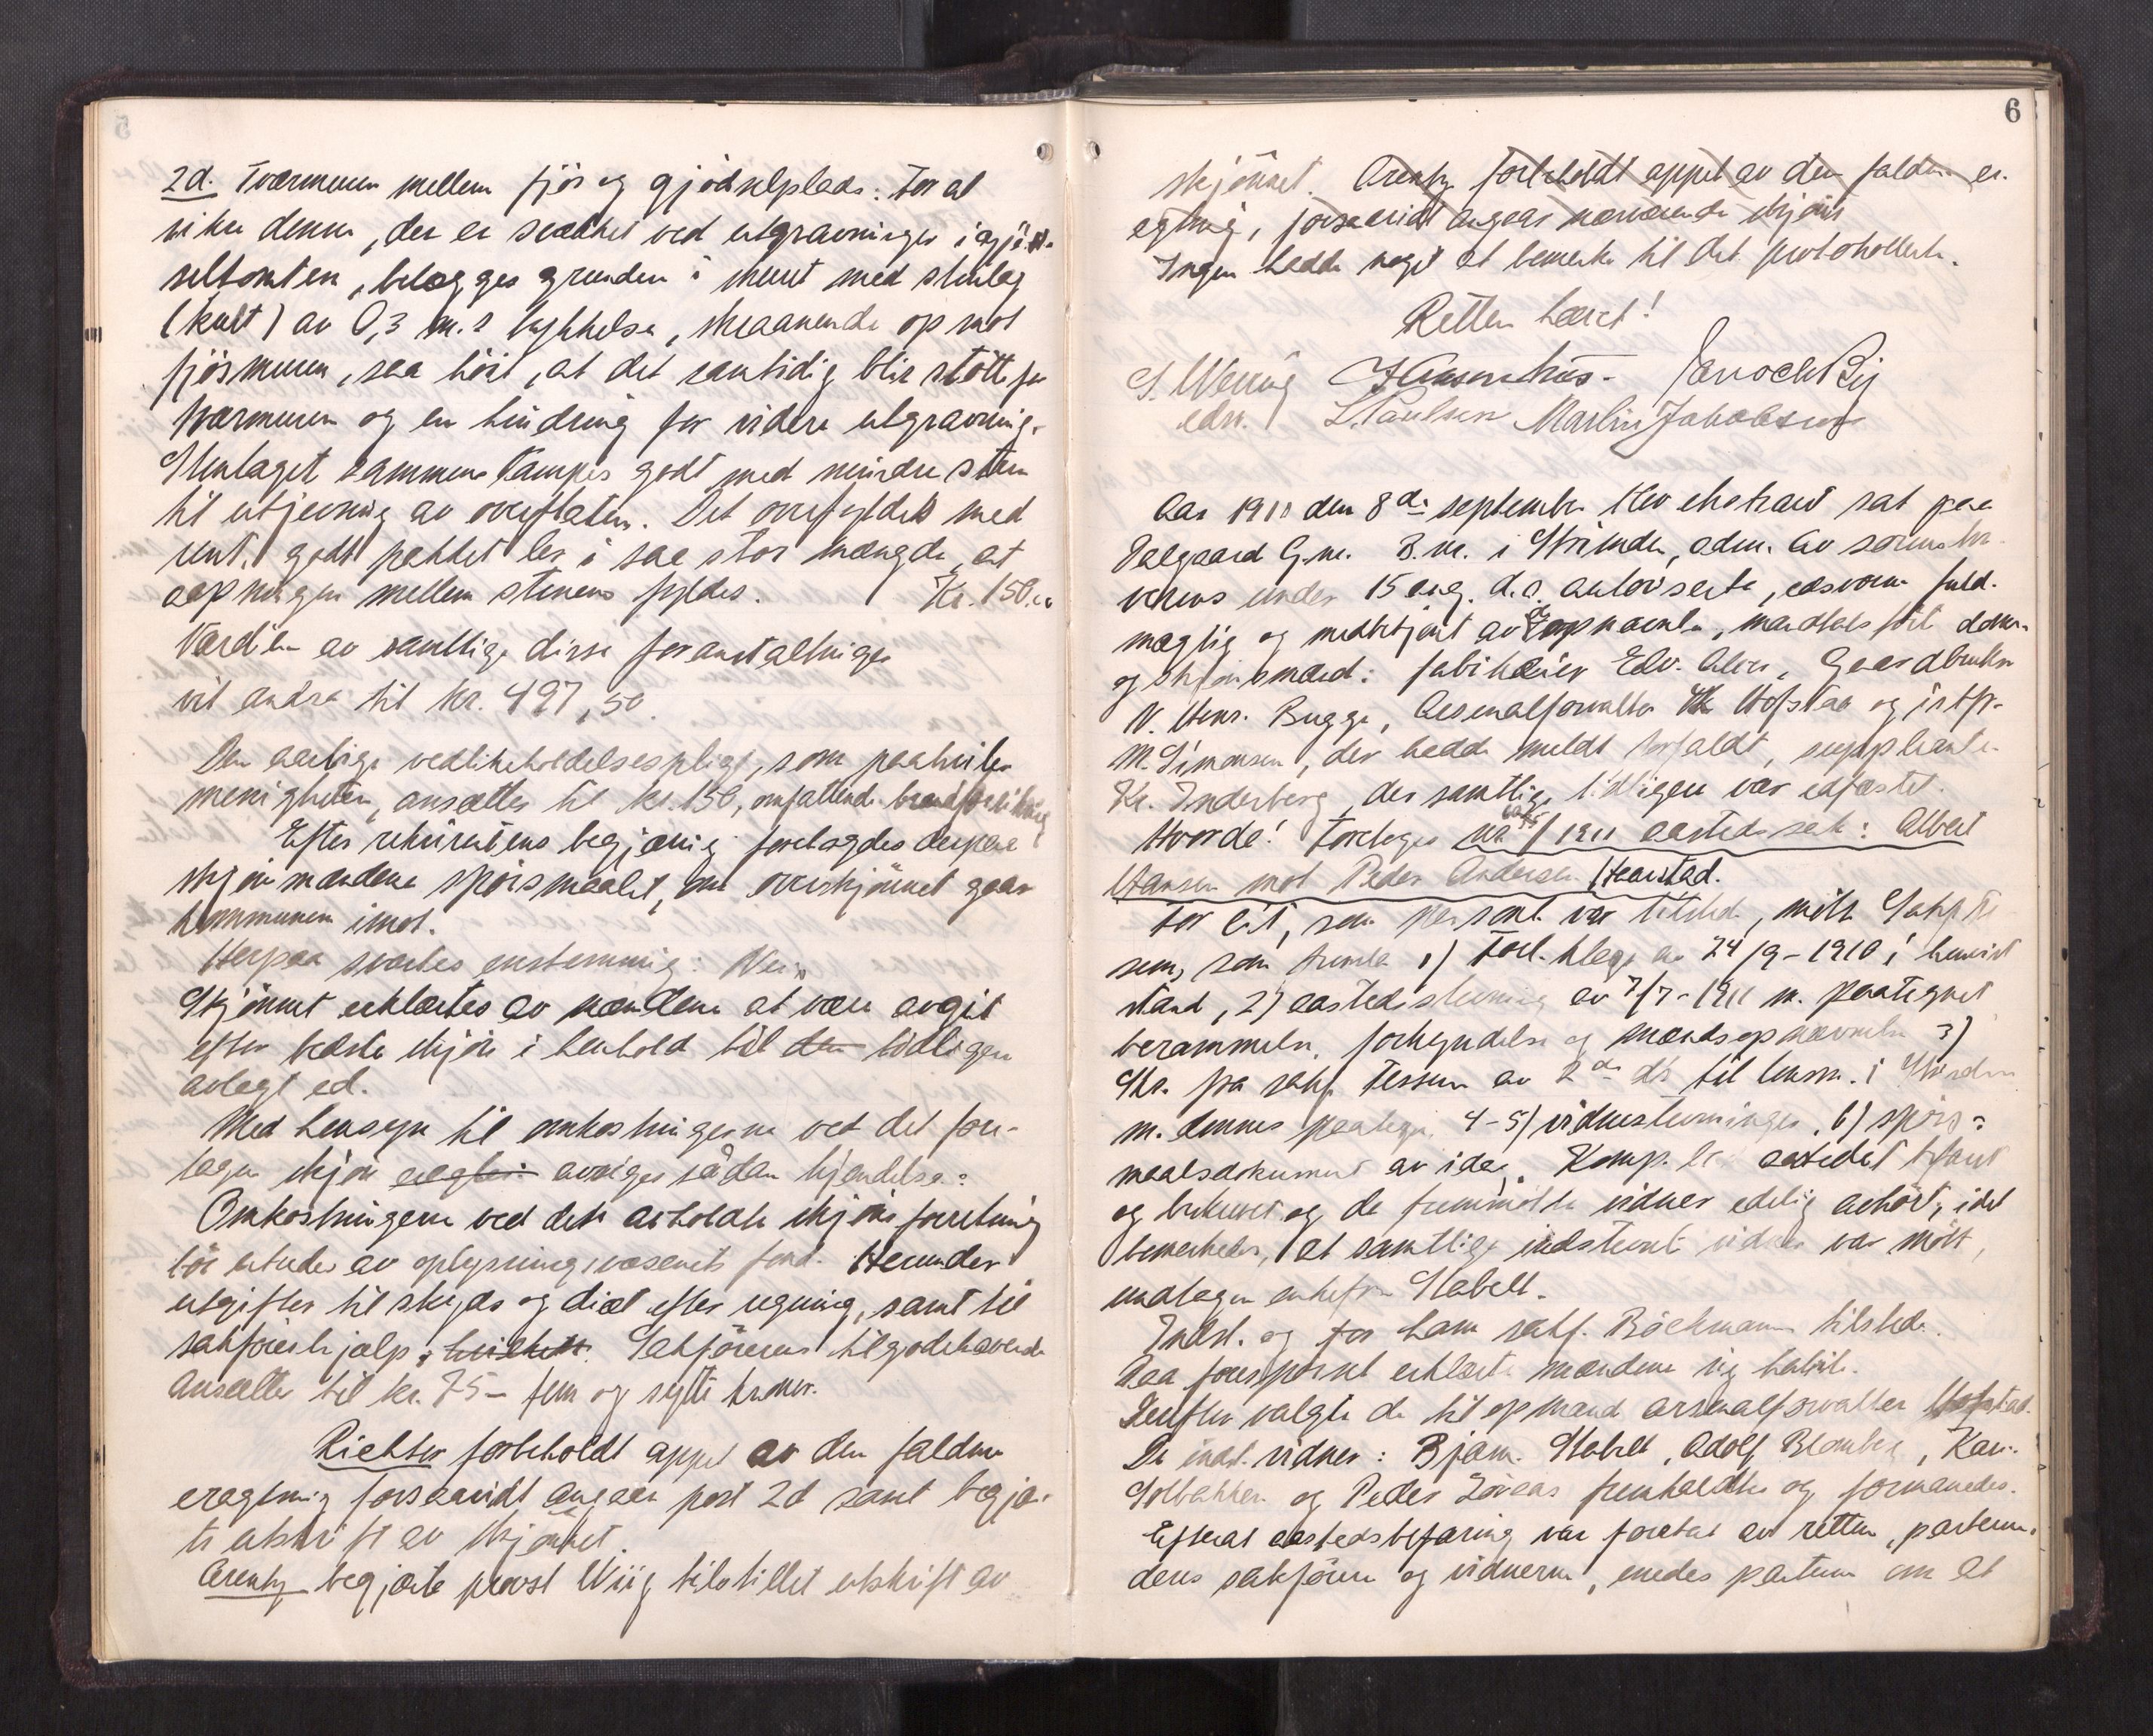 2d. Tværmuren mellem fjös og gjödselplads: For at
sikre denne, der er svækket ved utgravninger i gjöd-
seltomten, belægges grunden i muret med stenlag
(kult) av 0,3 m.s tykkelse, skraanende op mot
fjösmuren, saa höit, at det samtidig blir stötte for
tværmuren og en hindring for videre utgravning.
Stenlaget sammenstampes godt med mindre sten
til utjevning av overflaten. Det overfyldes med
rent, godt pakket ler i saa stor mængde, at
aapninger mellem stenene fyldes. Kr. 150,00
Værdien av samtlige disse foranstaltninger
vil andra til kr. 497,50.
Den aarlige vedlikeholdelsespligt, som paahviler
menigheten, ansættes til kr. 150, omfattende brandforsikring
Efter rekvirentens begjæring forelagdes derpaa
skjönsmændene spörsmaalet, om overskjönnet gaar
kommunen imot.
Herpaa svartes enstemmig: Nei.
Skjönnet erklærtes av mændene at være avgit
efter bedste skjön i henhold til den tidligere
avlagt ed.
Med hensyn til omkostningerne ved det fore-
tagne skjön avsiges sådan kjendelse:
Omkostningerne ved den avholdte skjönsforretning
bör utredes av oplysningsvæsenets fond. Herunder
utgifter til skyds og diæt efter regning, samt til
sakförerhjælp, hvilket. Sakförerens tilgodehavende
ansættes til kr. 75 – fem og sytti kroner.
Richter forbeholdt appel av den faldne
eragtning forsaavidt angaar post 2d samt begjær-
te utskrift av skjönnet.
Arentz begjærte provst Wiig tilstillet utskrift av
6
skjönnet. Arentz forbeholdt appel av den faldne er-
agtning, forsaavidt angaar nærværende skjön
Ingen hadde noget at bemerke til det protokollerte.
Retten hævet!
S. Wering Enoch By
edsv. L. Paulsen Martin Jakobsen
Aar 1911 den 8de september blev ekstraret sat paa
Dalgaard G.nr. B.nr. i Strinden, adm. av sorenskri-
verens under 15 aug. d.a. autoriserte, edsvorne fuld-
mægtig og medbetjent av de opnævnte, mandtalsförte doms-
og skjönsmænd: fabrikeier Edv. Alver, Gaardbruker
N. Henr. Bugge, Arsenalforvalter Hofstad og istf.
M. Simonsen, der hadde meldt forfald, suppleanten
Kr. Inderberg, der samtlige tidligere var edfæstet.
Hvorda! Foretoges sak /1911 aastedssak: Albert
Hansen mot Peder Andersen Heanstad.
For cit., som personl. var tilstede, mötte Sakf. Tes-
sem, som fremla 1) Forl.klage av 24/9-1910 i henvist
stand, 2) aastedsstevning av 7/7-1911 m. paategnet
berammelse, forkyndelse og mændsopnævnelse 3)
Skr. fra sakf. Tessem av 2den ds til lensm. i Strinden
m. dennes paategn. 4-5) vidnestevninger, 6) spörs-
maalsdokument av idag. Komp. lot aastedet befare
og beskrevet og de fremmötte vidner edelig avhört, idet
bemerkedes, at samtlige indstevnte vidner var mött,
undtagen enkefru Stabell.
Indst. og for ham sakf. Böckmann tilstede.
Paa forespörsel erklærte mændene sig habile.
Derefter valgte de til opmand arsenalforvalter Hofstad.
De indst. vidner: Bjarne Stabell, Adolf Blomberg, Kar.
Solbakken og Peder Löveaas fremkaldtes og formanedes.
Efterat aastedsbefaring var foretat av retten, parterne,
deres sakförere og vidnerne, enedes parterne om at